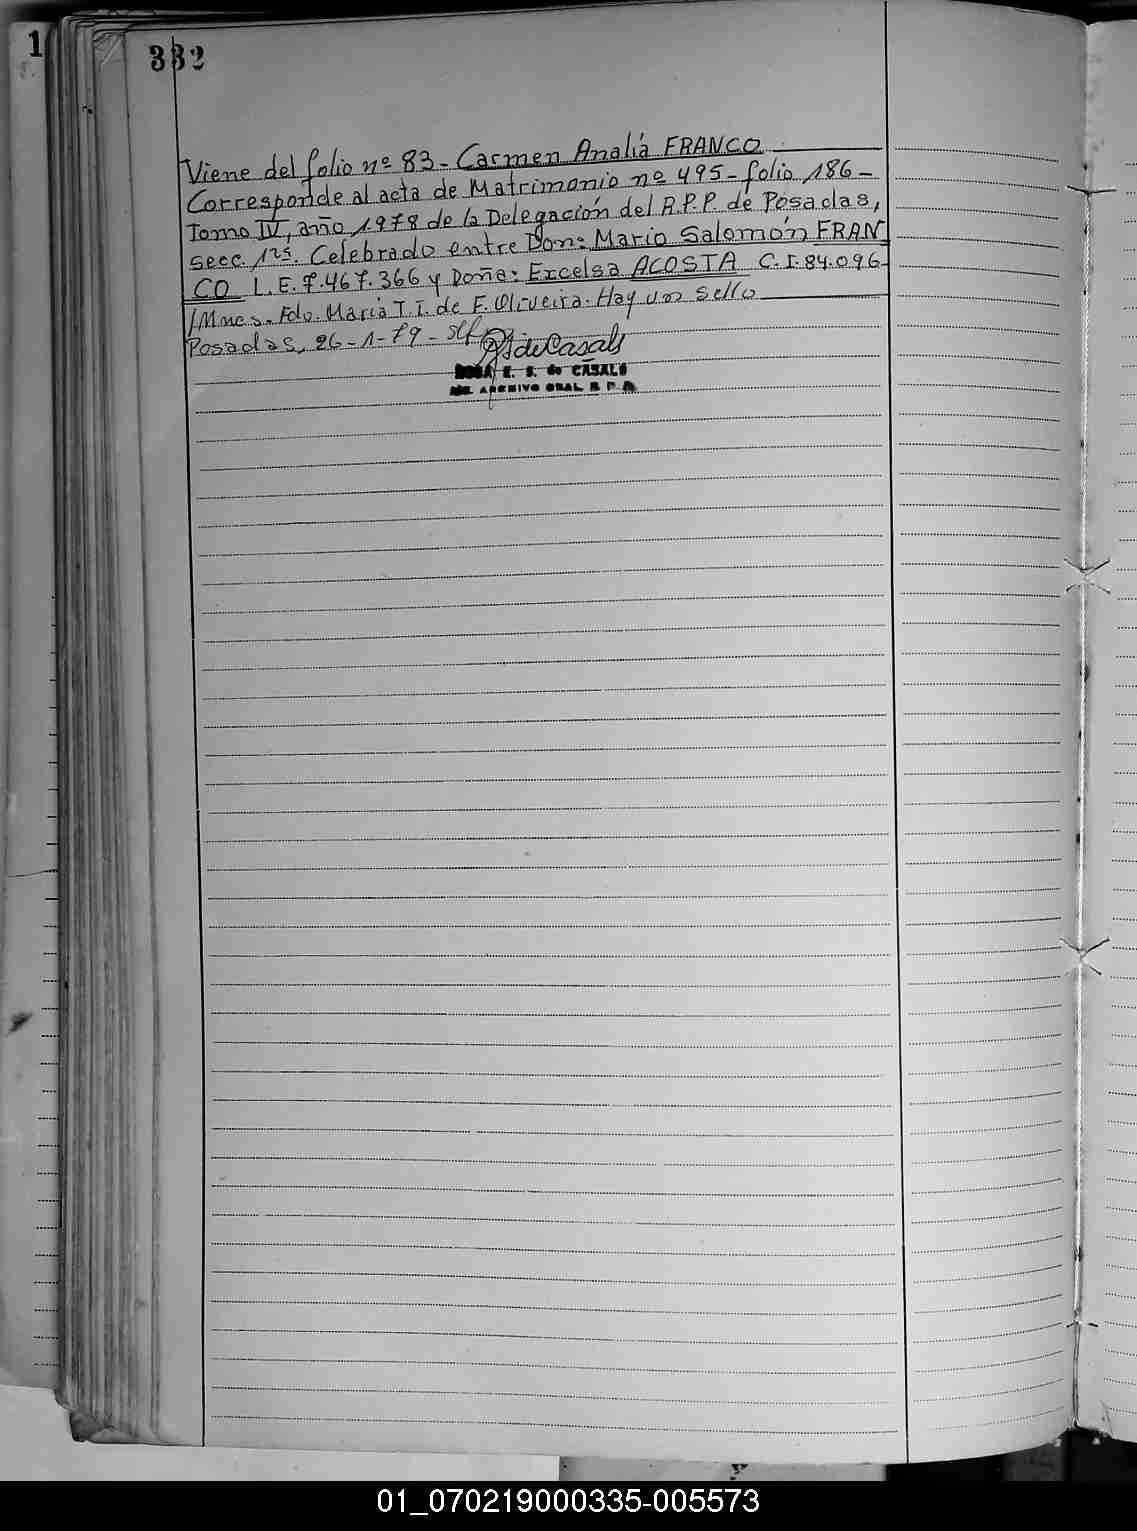 1
332
Viene del folio nº 83 - Carmen Analiá FRANCO
Corresponde al acta de Matrimonio nº 495 - folio 186 -
Tomo IV, año 1.978 de la Delegación del R.P.P. de Posadas,
secc. 1ra. Celebrado entre Don: Mario Salomón FRAN
CO L.E. 7.467.366 y Doña: Excelsa ACOSTA C.I. 84.096-
/Mnes. Fdo. María T. I. de F. Oliveira. Hay un sello
Posadas, 26-1-79 -
ROSA E. S. de CASALS
ARCHIVO GRAL. R. P. P.
01_070219000335-005573